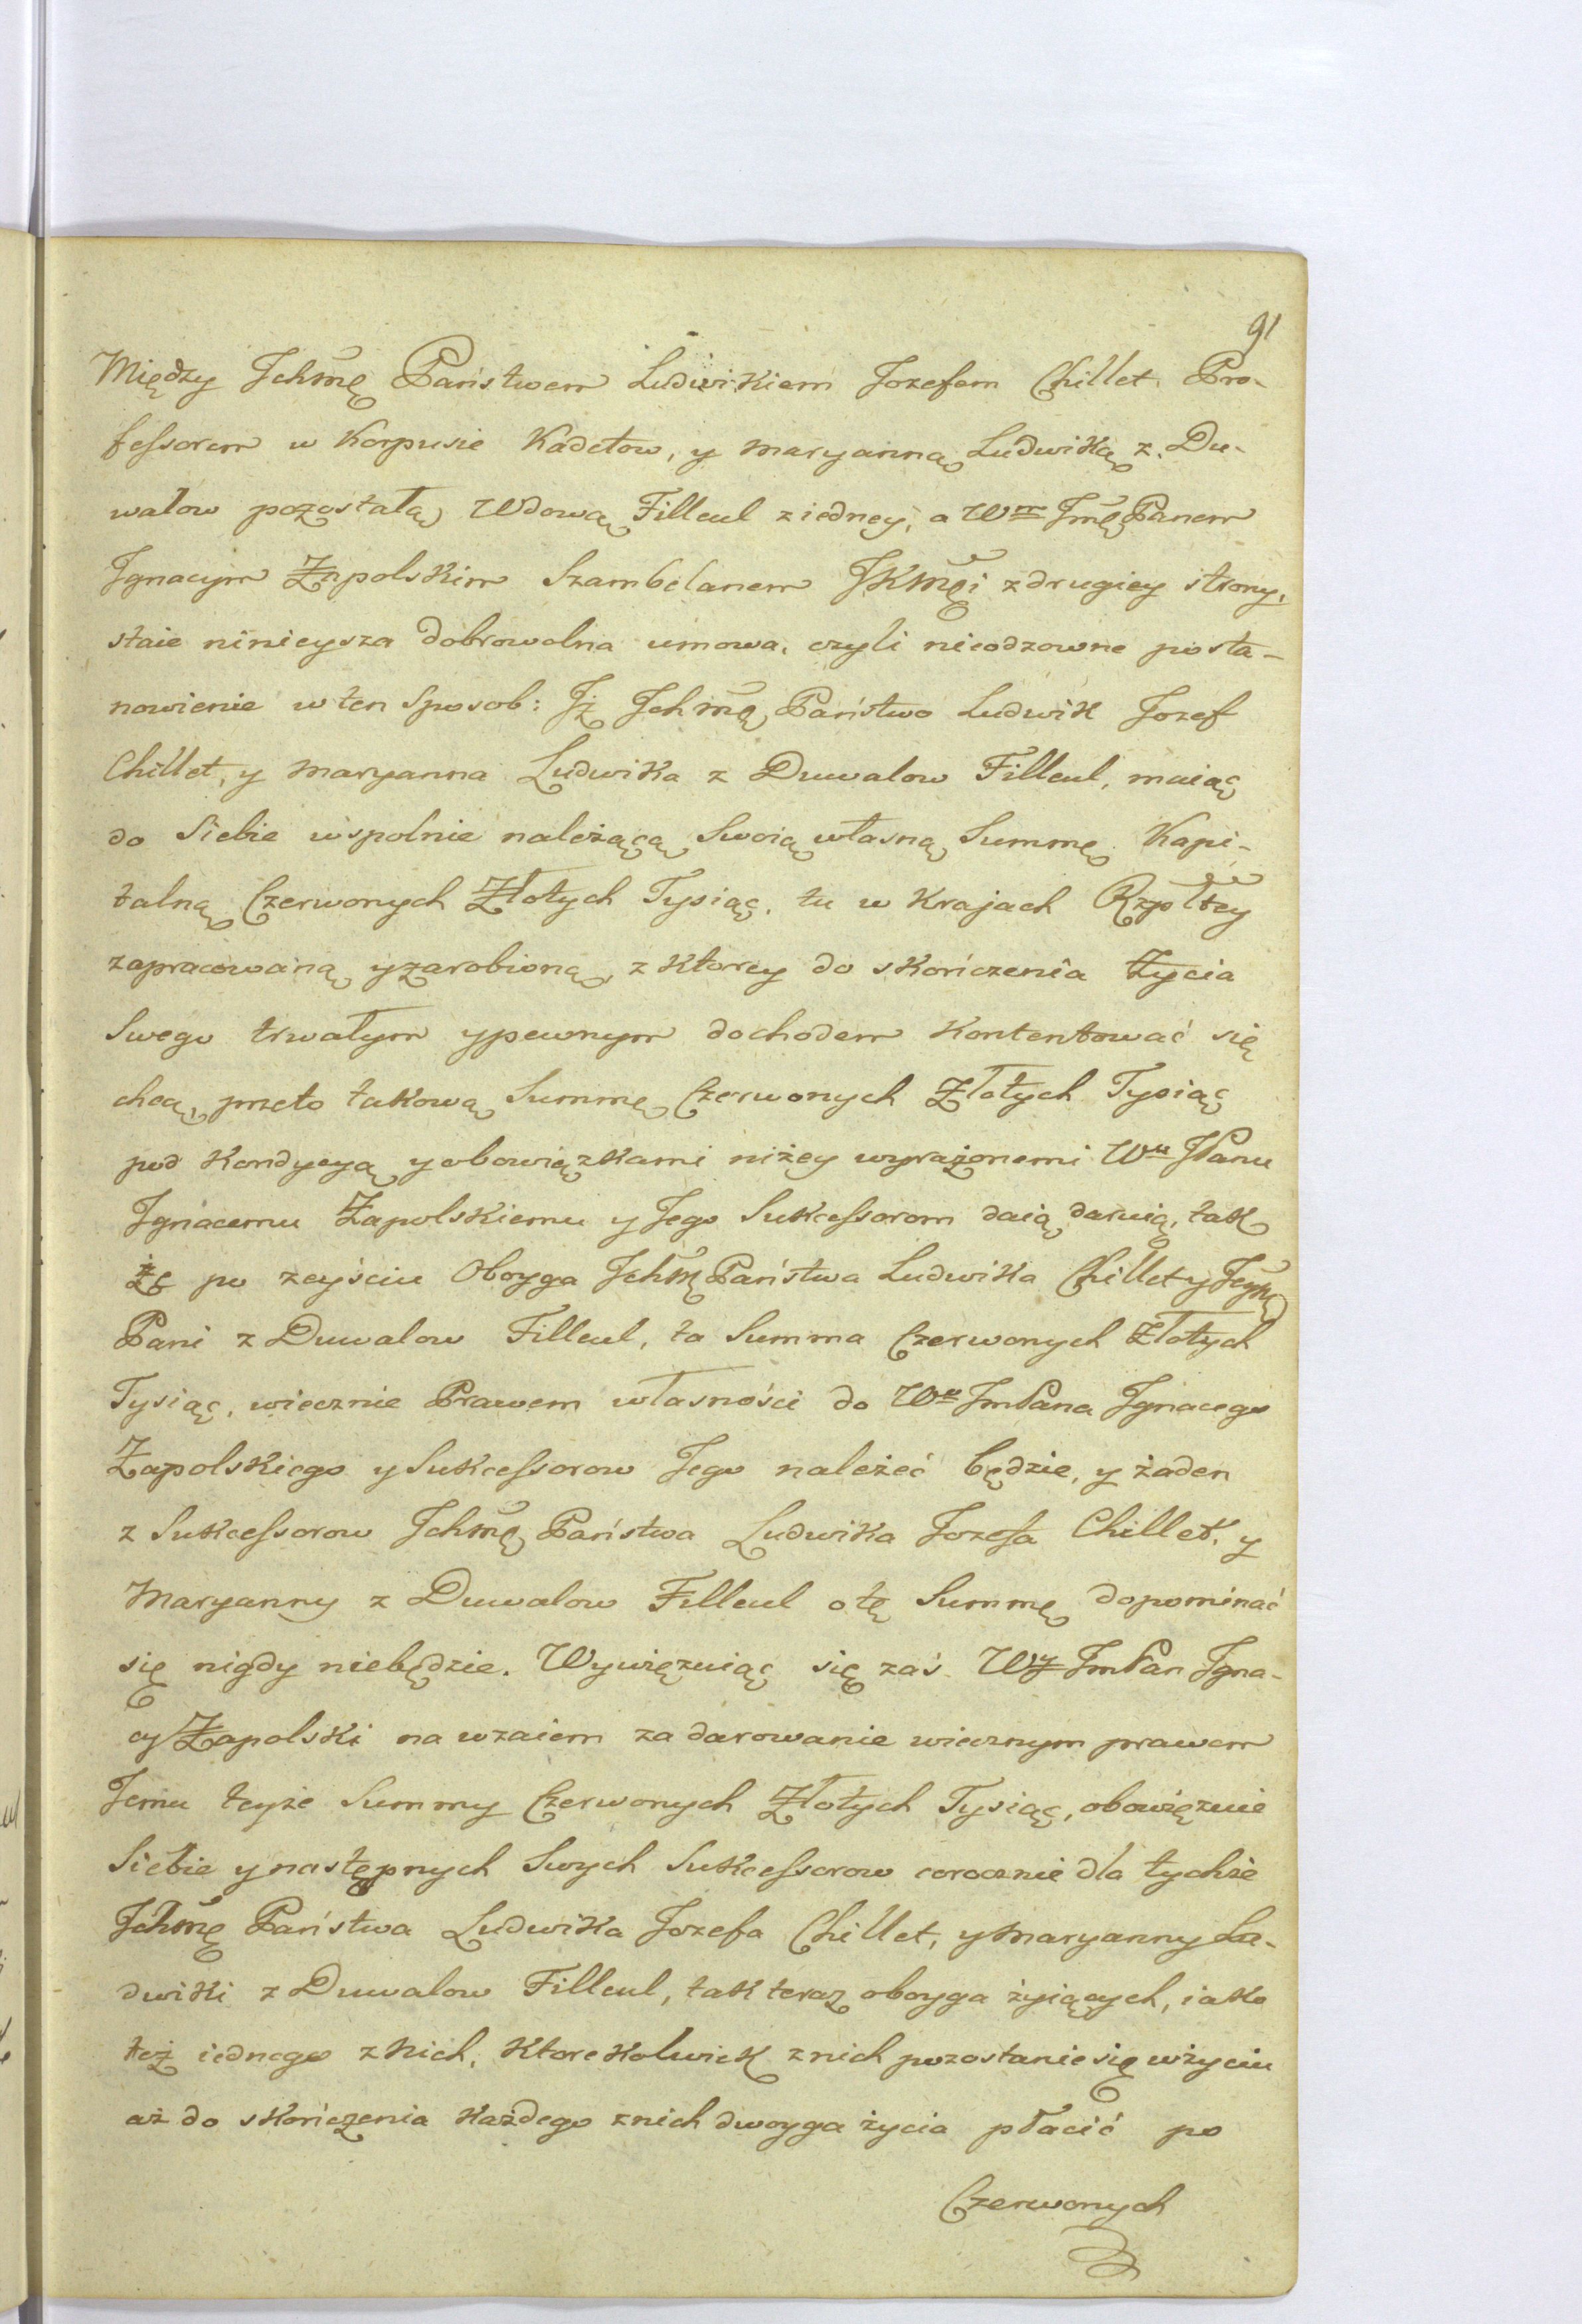 91
Między Ichmę Państwem Ludwikiem Jozefem Chillet Pro-
fessorem w Korpusie Kadetow, y Maryanną Ludwiką z Du-
walow pozostałą Wdową Filleul z iedney, a Wm Jmę Panem
Ignacym Zapolskim Szambelanem JKMęi z drugiey strony,
staie ninieysza dobrowolna umowa, czyli nieodzowne posta-
nowienie w ten Sposob: Iż Ichmę Państwo Ludwik Jozef
Chillet, y Maryanna Ludwika z Duwalow Filleul, maiąc
do Siebie wspolnie należącą Swoią własną Summę Kapi-
talną Czerwonych Złotych Tysiąc, tu w Krajach Rzpltey
zapracowaną y zarobioną, z ktorey do skończenia Życia
Swego trwałym y pewnym dochodem kontentować się
chcą, przeto takową Summę Czerwonych Złotych Tysiąc
pod Kondycyą y obowiązkami niżey wyrażonemi Wu JPanu
Ignacemu Zapolskiemu y Jego Sukcessorom daią daruią, tak
że po zeyściu Oboyga Ichmę Państwa Ludwika Chillet y Jeymę
Pani z Duwalow Filleul, ta Summa Czerwonych Złotych
Tysiąc, wiecznie Prawem własności do Wo JmPana Ignacego
Zapolskiego y Sukcessorow Jego należeć będzie, y żaden
z Sukcessorow Ichmę Państwa Ludwika Jozefa Chillet, y
Maryanny z Duwalow Filleul o tę Summę dopominać
się nigdy niebędzie. Wywięzuiąc się zaś Wy JmPan Igna-
cy Zapolski na wzaiem za darowanie wiecznym prawem
Jemu teyże Summy Czerwonych Złotych Tysiąc, obowięzuie
Siebie y następnych Swych Sukcessorow corocznie dla tychże
Ichmę Państwa Ludwika Jozefa Chillet, y Maryanny Lu-
dwiki z Duwalow Filleul, tak teraz oboyga żyiących, iako
też iednego z nich, ktorekolwiek z nich pozostanie się w życiu
aż do skończenia każdego z nich dwoyga życia płacić po
Czerwonych